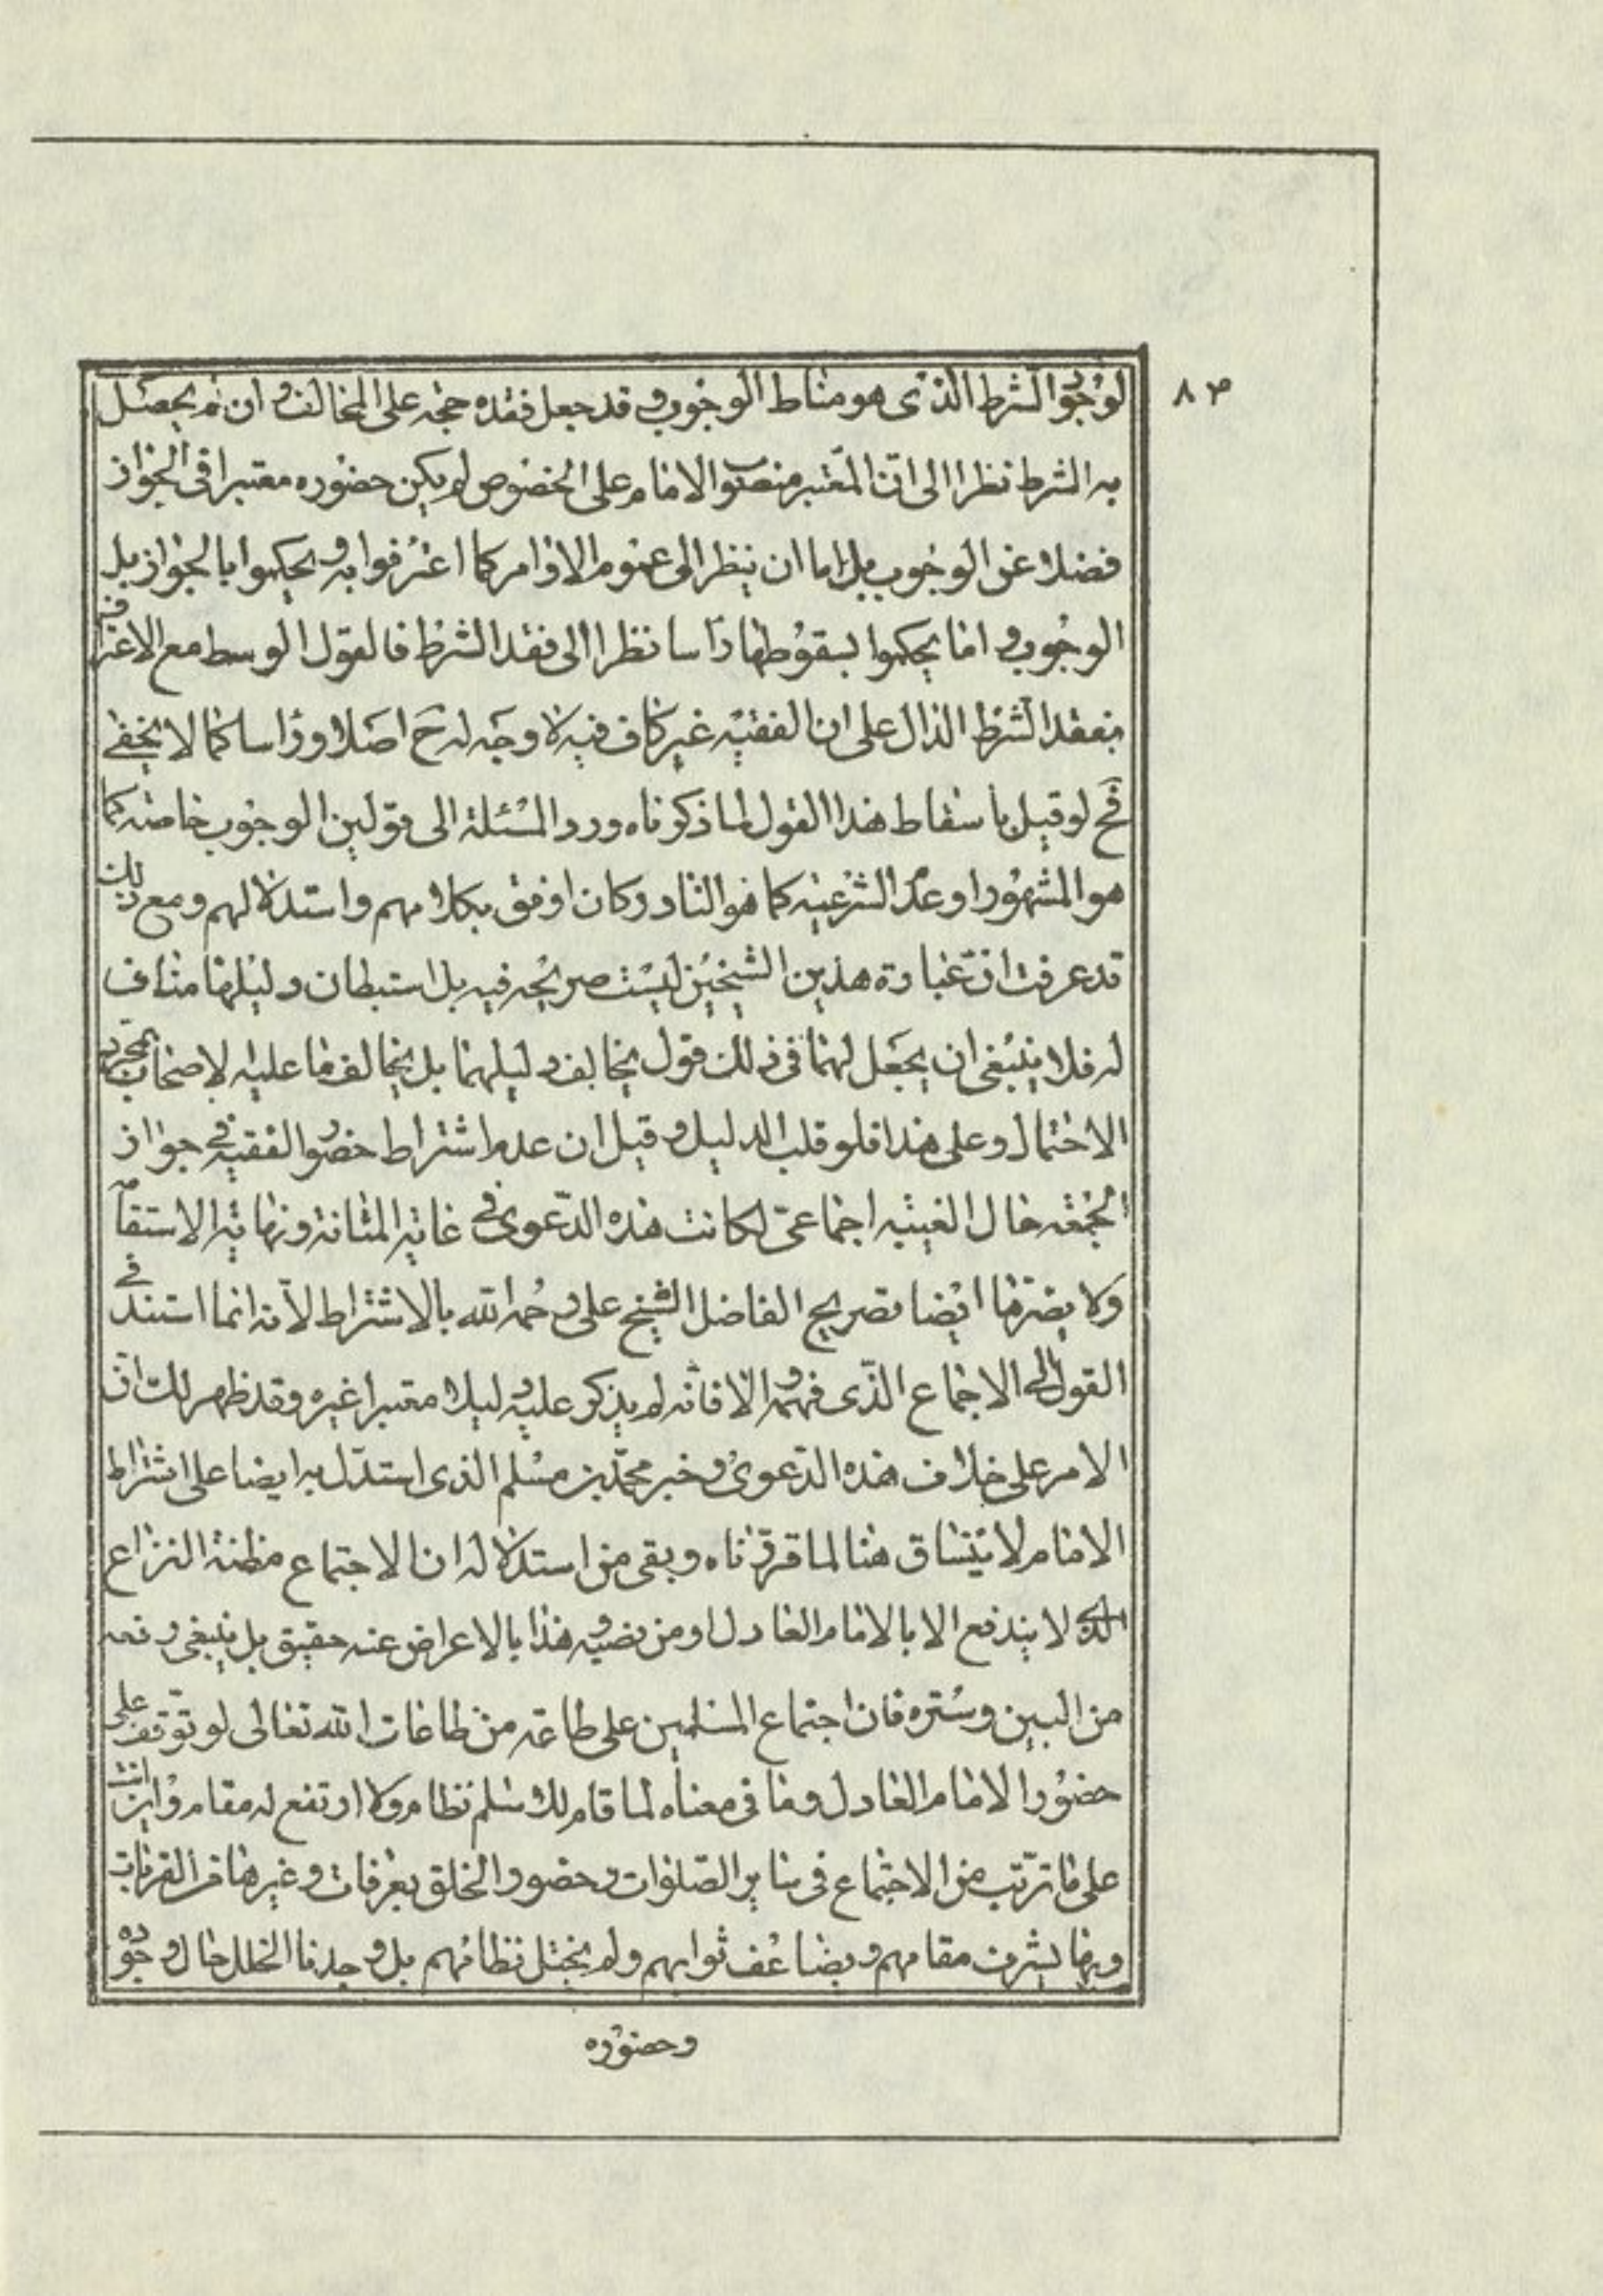 ٨٣
لوجود الشرط الذى هو مناط الوجوب وقد جعل فقده حجة على المخالف وان لم يحصل
به الشرط نظرا الى انّ المعتبر منصوب الامام على الخصوص لم يكن حضوره معتبرا فى الجواز
فضلا عن الوجوب بل اما ان ينظر الى عموم الاوامر كما اعترفوا به ويحكموا بالجواز بل
الوجوب واما يحكموا بسقوطها رأسا نظرا الى فقد الشرط فالقول الوسط مع الاعتراف
بفقد الشرط الدال على ان الفقيه غير كاف فيه لا وجه له ح اصلا ورأسا كما لا يخفى
فح لو قيل باسقاط هذا القول لما ذكرناه ورد المسئلة الى قولين الوجوب خاصة كما
هو المشهور او عدم الشرعية كما هو النادر كان اوفق بكلامهم واستدلالهم ومع ذلك
قد عرفت ان عبارة هذين الشيخين ليست صريحة فيه بل استبطان دليلهما مناف
له فلا ينبغى ان يجعل لهما فى ذلك قول يخالف دليلهما بل يخالف ما عليه الاصحاب بمجرد
الاحتمال وعلى هذا فلو قلب الدليل وقيل ان عدم اشتراط حضور الفقيه فى جواز
الجمعة حال الغيبة اجماعىّ لكانت هذه الدّعوى فى غاية المتانة ونهاية الاستقامة
ولا يضرّها ايضا تصريح الفاضل الشيخ على رحمه الله بالاشتراط لأنه انما استند فى
القول الى الاجماع الذّى فهمه والا فانّه لم يذكر عليه دليلا معتبرا غيره وقد ظهر لك انّ
الامر على خلاف هذه الدّعوى وخبر محمّد بن مسلم الذى استدلّ به ايضا على اشتراط
الامام لا يتساق هنا لما قرّرناه وبقى من استدلاله ان الاجتماع مظنة النزاع
الذى لا يندفع الا بالامام العادل او من نصبه وهذا بالاعراض عنه حقيق بل ينبغى رفعه
من البين وستره فان اجتماع المسلمين على طاعة من طاعات الله تعالى لو توقف على
حضور الامام العادل وما فى معناه لما قام للاسلام نظام ولا ارتفع له مقام واين انت
على ما ترتّب من الاجتماع فى سائر الصّلوات وحضور الخلق بعرفات وغيرها من القربات
وبها يشرف مقامهم ويضاعف ثوابهم ولم يختل نظامهم بل وجدنا الخلل حال وجوده
وحضوره